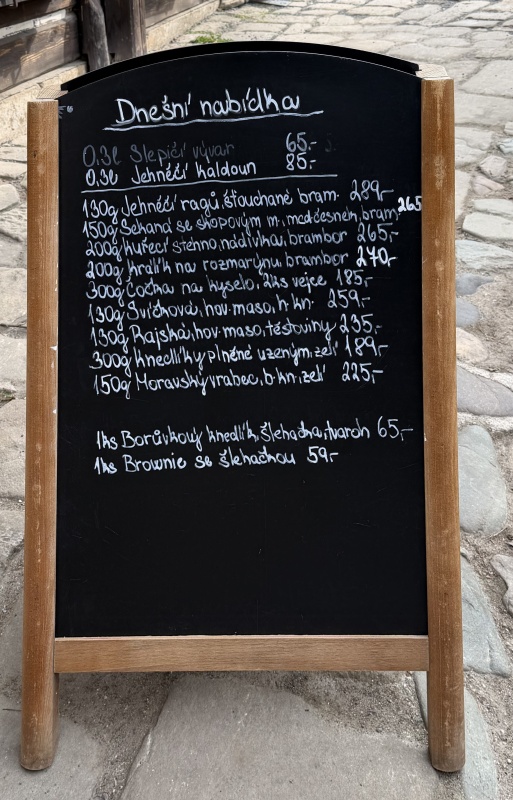 Dnešní nabídka
0,3l Slepičí vývar 65.-
0,3l Jehněčí kaldoun 85.-
130g Jehněčí ragů šťouchané bram. 289,-
150g Sekaná se skopovým m, medčesnek, bram, 265
200g Kuřecí stehno, nádivka, brambor 265,-
200g Králík na rozmarýnu, brambor 270,-
300g Čočka na kyselo, 2ks vejce 185,-
130g Svíčková, hov. maso, h. kn. 259,-
130g Rajská, hov. maso, těstoviny 235,-
300g knedlíky plněné uzeným, zelí 189,-
150g Moravský vrabec, b. kn. zelí 225,-
1ks Borůvkový knedlík, šlehačka, tvaroh 65,-
1ks Brownie se šlehačkou 59,-